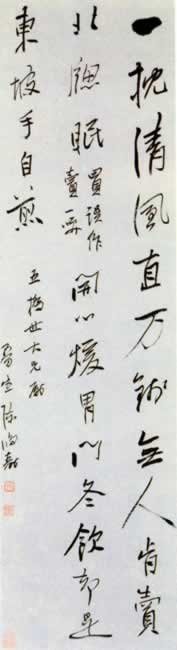 一枕清風直万錢無人肯賣
北牕眠
買誤作
賣一字
開心煖胃門冬飲知是
東坡手自煎
五橋世大兄屬
曼生陳鴻壽